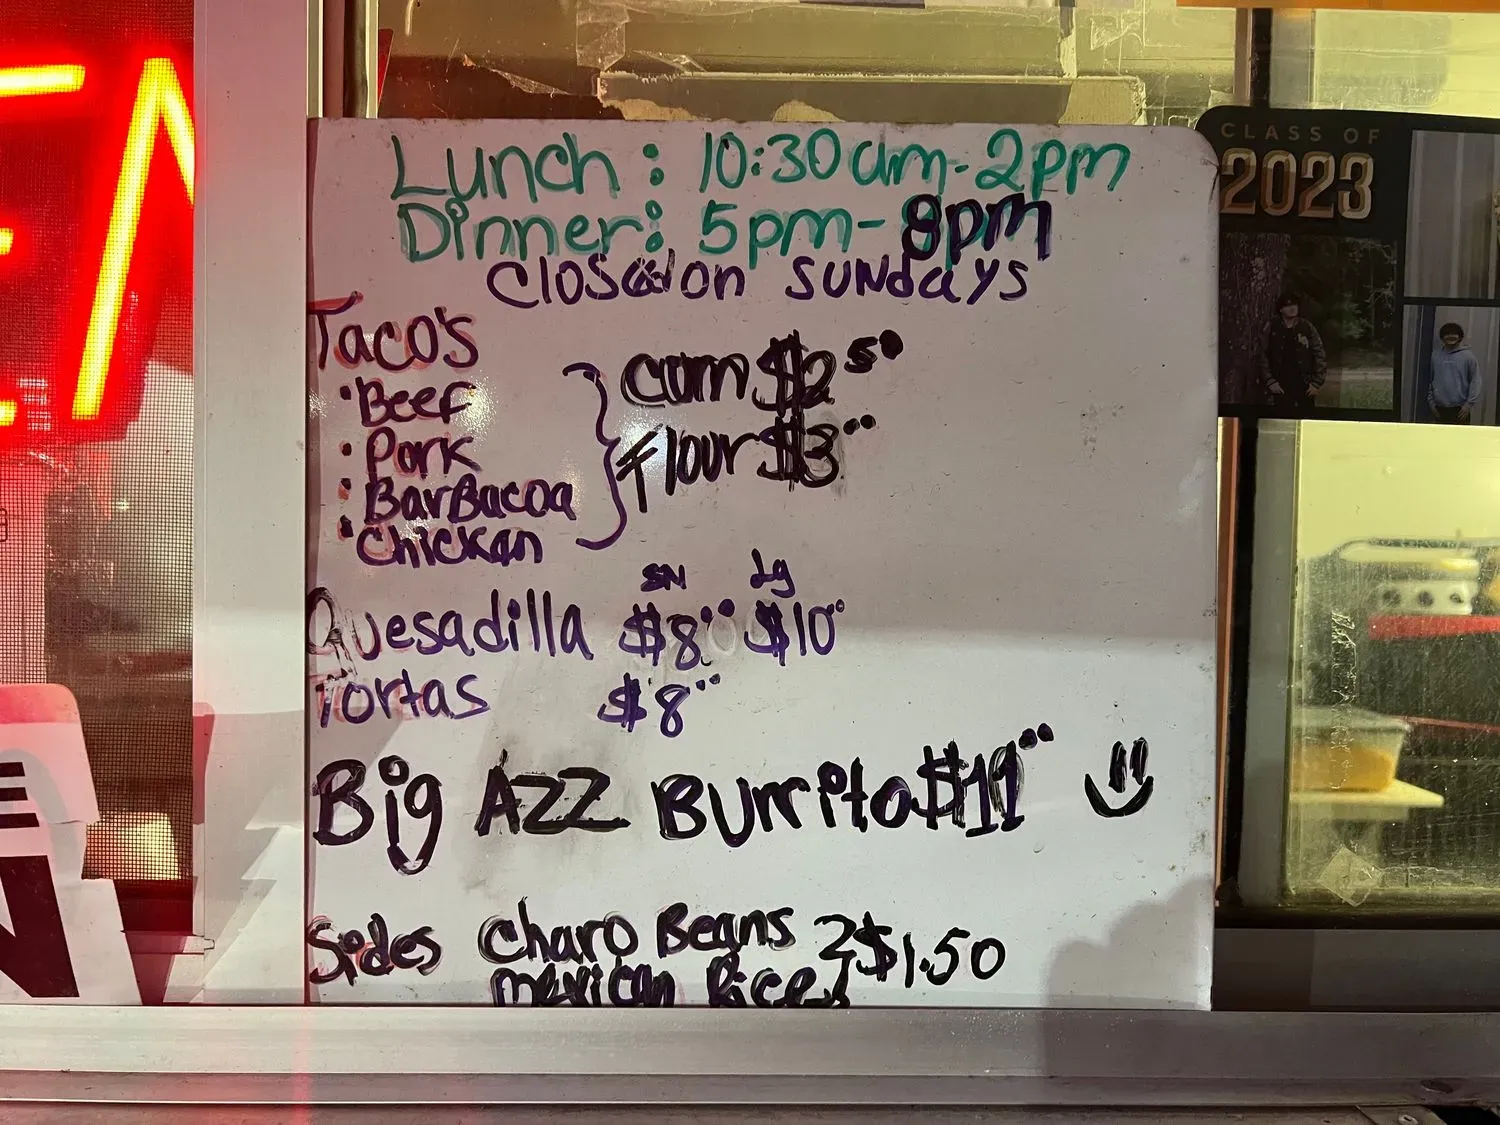 Lunch : 10:30am-2pm
Dinner: 5pm-8pm
Closed on Sundays
Taco's
• Beef
• Pork
• BarBacoa
• Chicken
Corn $2⁵⁰
Flour $3⁰⁰
SM Lg
Quesadilla $8⁰⁰ $10⁰
Tortas $8⁰⁰
Big Azz Burrito $11⁰⁰
Sides Charo Beans } $1.50
Mexican Rice
CLASS OF
2023